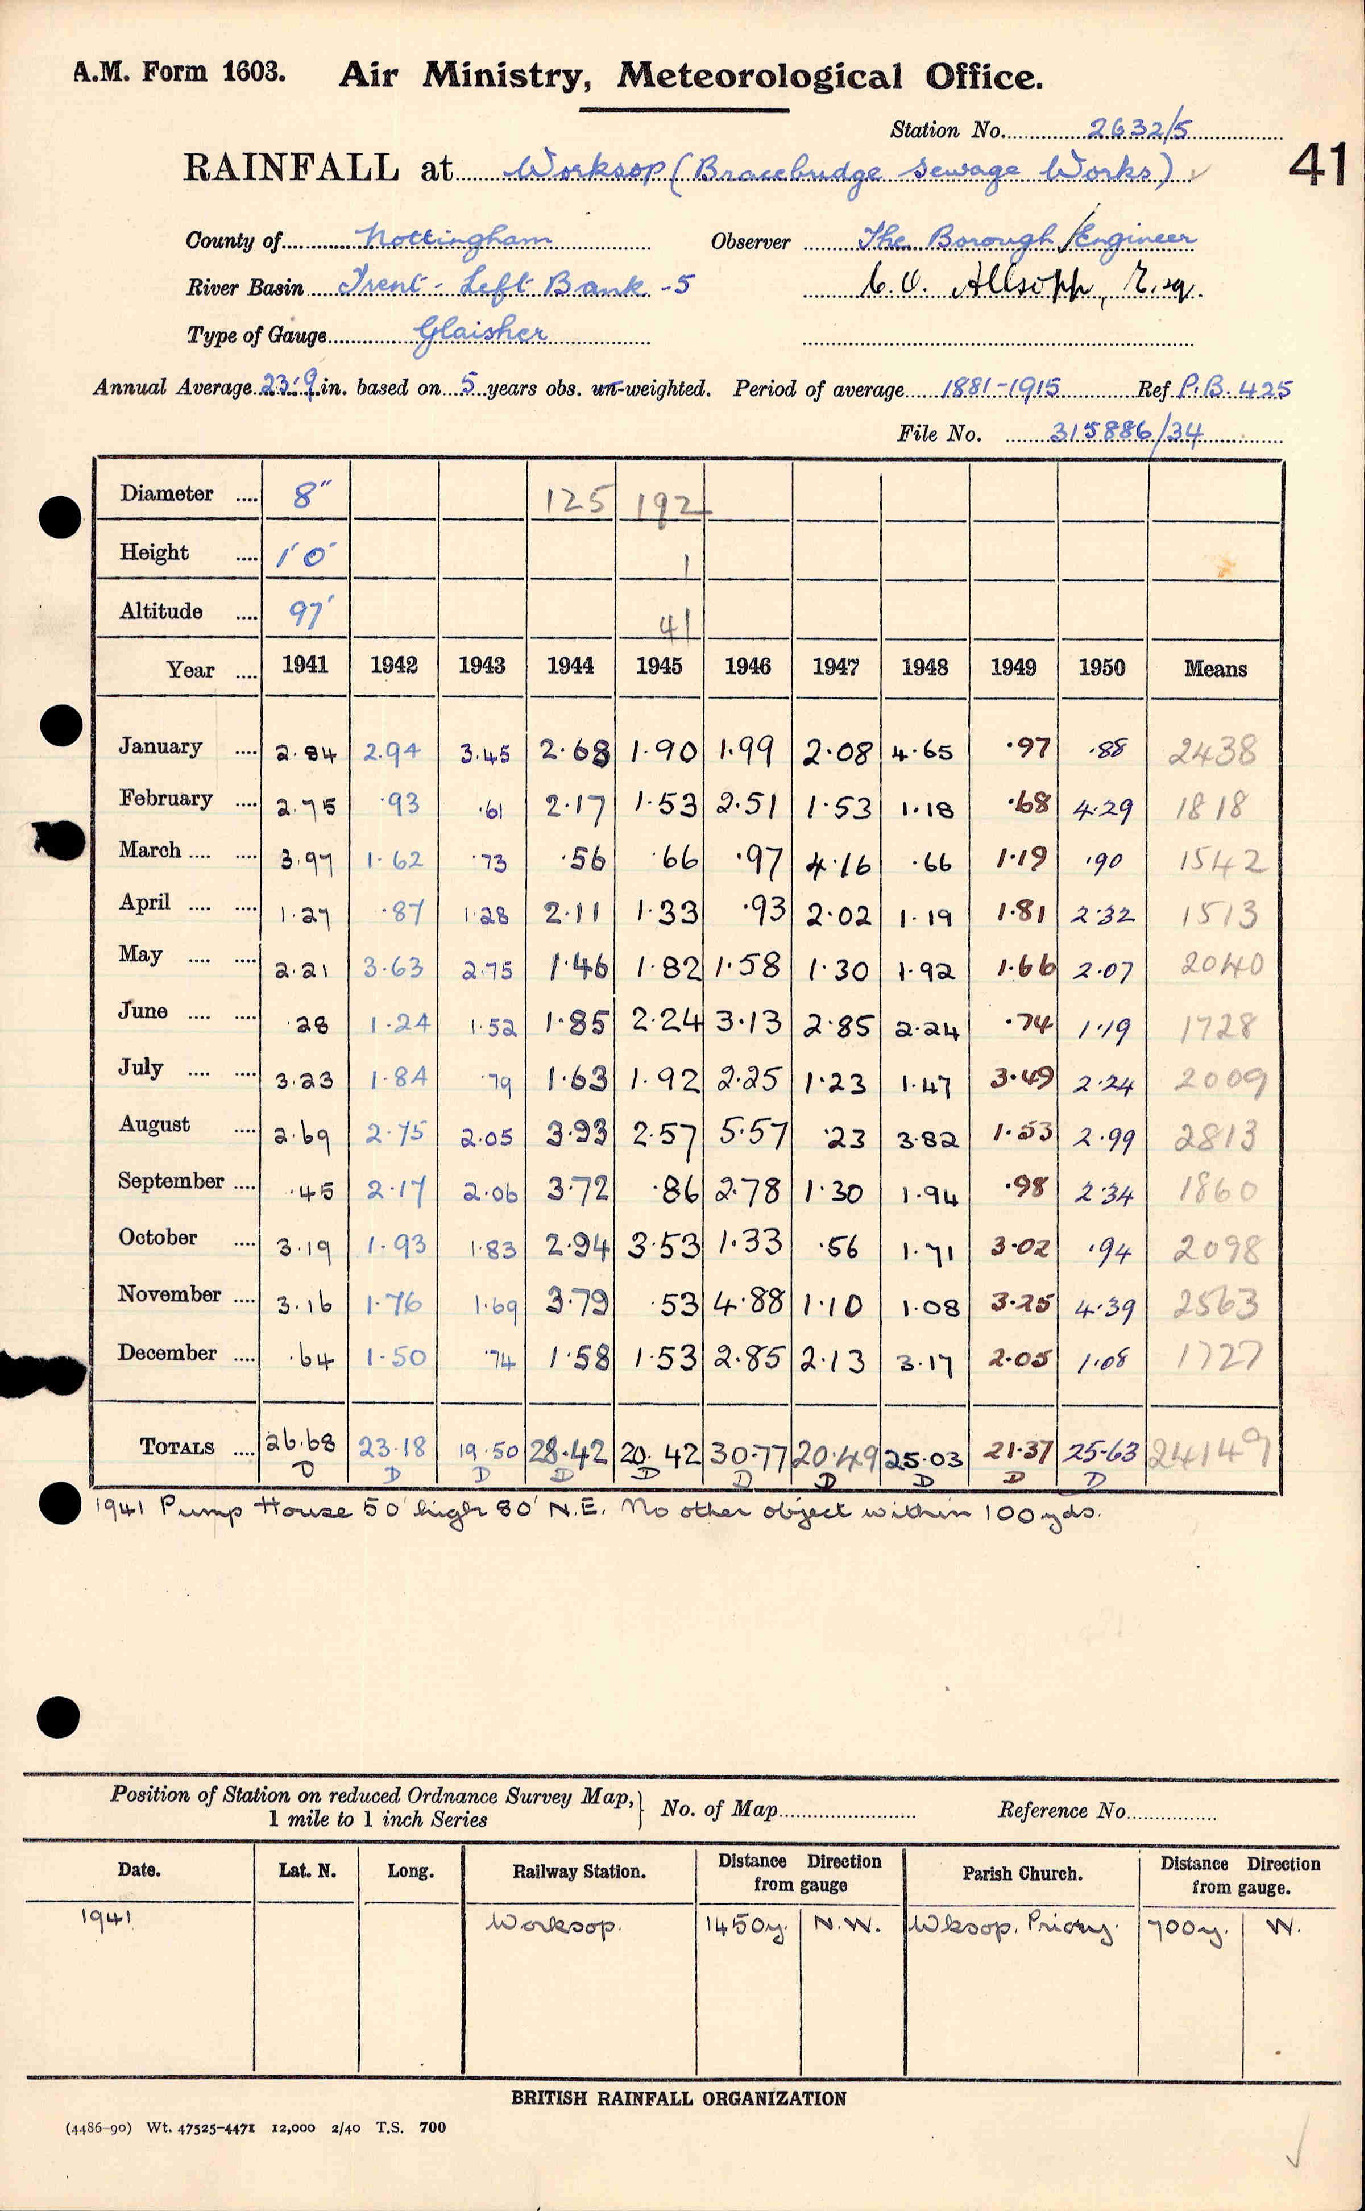 A.M. Form 1603. Air Ministry, Meteorological Office.
Station No. 2632/5
RAINFALL at Worksop (Bracebridge Sewage Works) 41
County of Nottingham Observer The Borough Engineer
River Basin Trent - Left Bank - 5 C. O. Allsopp, Esq.
Type of Gauge Glaisher
Annual Average 23.9 in. based on 5 years obs. un-weighted. Period of average 1881-1915 Ref P.B. 425
File No. 315886/34
Diameter .... 8" 125 192
Height .... 1' 0" 1
Altitude .... 97' 41
Year .... 1941 1942 1943 1944 1945 1946 1947 1948 1949 1950 Means
January .... 2.84 2.94 3.45 2.68 1.90 1.99 2.08 4.65 .97 .88 2438
February .... 2.75 .93 .61 2.17 1.53 2.51 1.53 1.18 .68 4.29 1818
March .... .... 3.97 1.62 .73 .56 .66 .97 4.16 .66 1.19 .90 1542
April .... .... 1.27 .87 1.28 2.11 1.33 .93 2.02 1.19 1.81 2.32 1513
May .... .... 2.21 3.63 2.75 1.46 1.82 1.58 1.30 1.92 1.66 2.07 2040
June .... .... .28 1.24 1.52 1.85 2.24 3.13 2.85 2.24 .74 1.19 1728
July .... .... 3.23 1.84 .79 1.63 1.92 2.25 1.23 1.47 3.49 2.24 2009
August .... 2.69 2.75 2.05 3.93 2.57 5.57 .23 3.82 1.53 2.99 2813
September .... .45 2.17 2.06 3.72 .86 2.78 1.30 1.94 .98 2.34 1860
October .... 3.19 1.93 1.83 2.94 3.53 1.33 .56 1.71 3.02 .94 2098
November .... 3.16 1.76 1.69 3.79 .53 4.88 1.10 1.08 3.25 4.39 2563
December .... .64 1.50 .74 1.58 1.53 2.85 2.13 3.17 2.05 1.08 1727
TOTALS .... 26.68 23.18 19.50 28.42 20.42 30.77 20.49 25.03 21.37 25.63 24149
D D D D D D D D D D
1941 Pump House 50' high 80' N.E. No other object within 100 yds.
Position of Station on reduced Ordnance Survey Map, 1 mile to 1 inch Series } No. of Map Reference No.
Date. Lat. N. Long. Railway Station. Distance Direction from gauge Parish Church. Distance Direction from gauge.
1941 Worksop. 1450y. N.W. Wksop. Priory. 700y. W.
BRITISH RAINFALL ORGANIZATION
(4486-90) Wt. 47525-4471 12,000 2/40 T.S. 700